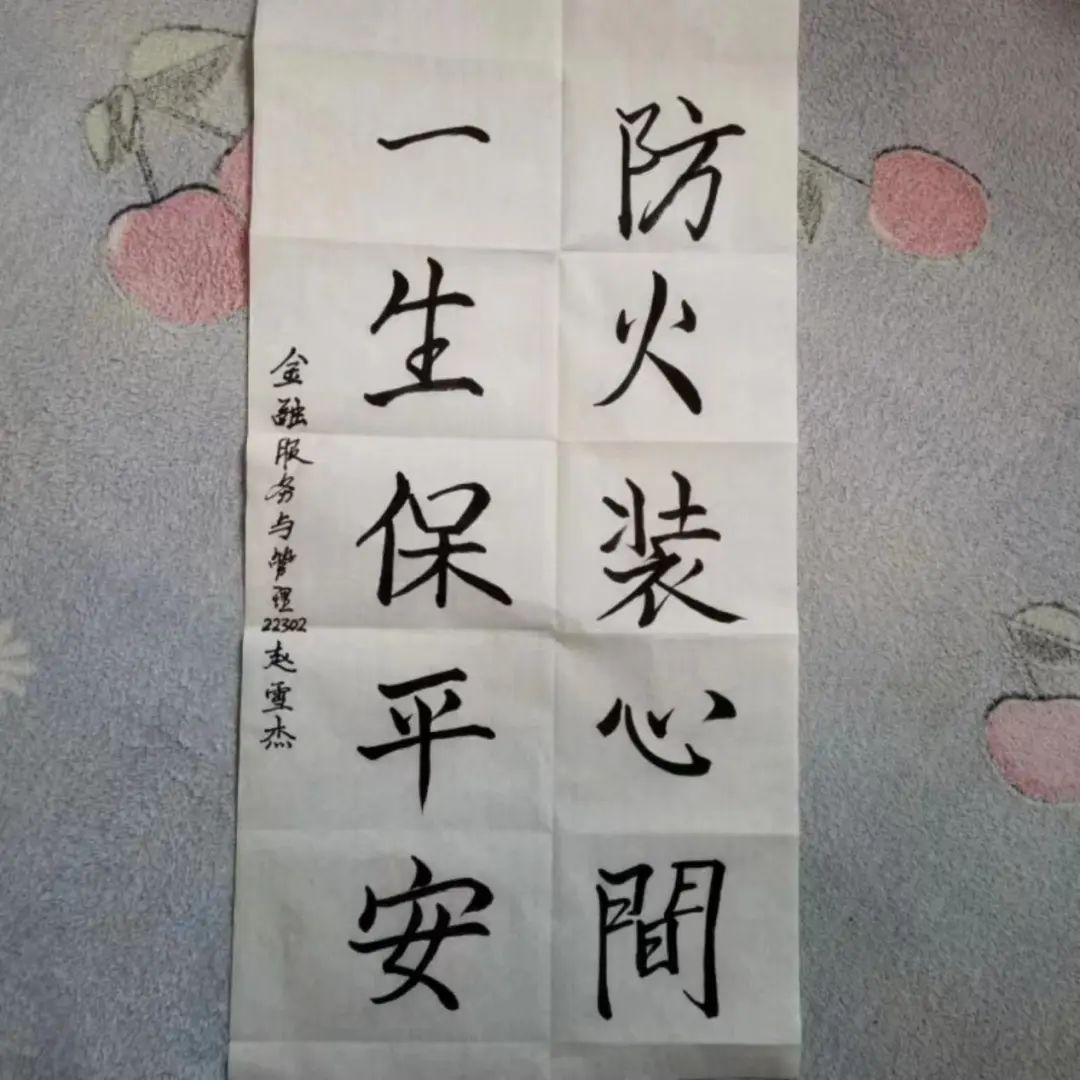 防火装心間
一生保平安
金融服务与管理22302赵雪杰